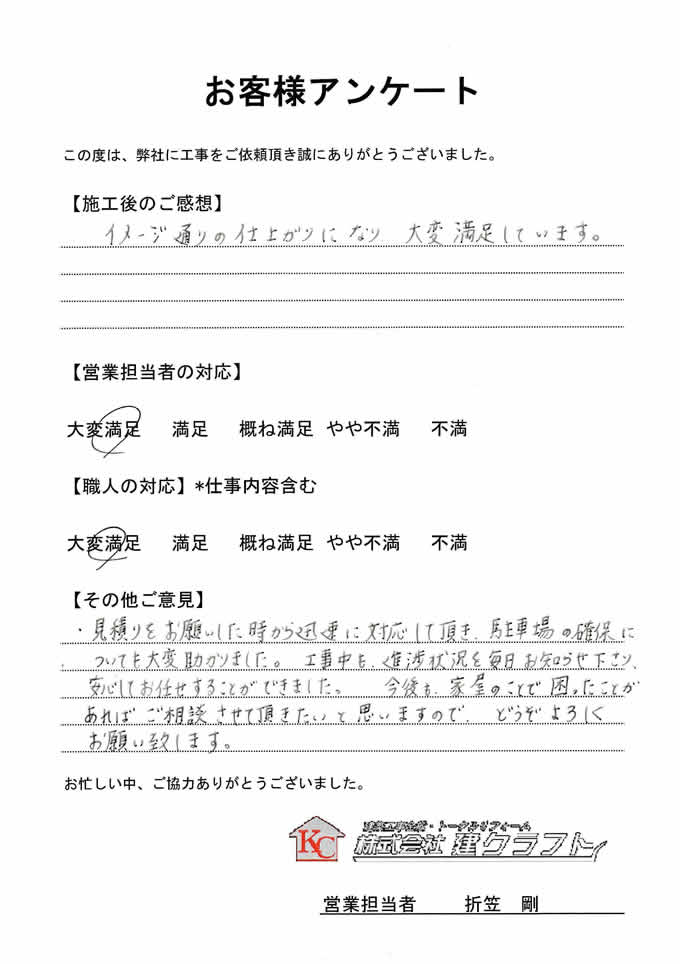 お客様アンケート
この度は、弊社に工事をご依頼頂き誠にありがとうございました。
【施工後のご感想】
イメージ通りの仕上がりになり、大変満足しています。
【営業担当者の対応】
大変満足 満足 概ね満足 やや不満 不満
【職人の対応】*仕事内容含む
大変満足 満足 概ね満足 やや不満 不満
【その他ご意見】
・見積りをお願いした時から迅速に対応して頂き、駐車場の確保に
ついても大変助かりました。工事中も、進渉状況を毎日お知らせ下さり、
安心してお任せすることができました。今後も、家屋のことで困ったことが
あればご相談させて頂きたいと思いますので、どうぞよろしく
お願い致します。
お忙しい中、ご協力ありがとうございました。
KC
トータルリフォーム
株式会社 建クラフト
営業担当者 折笠 剛